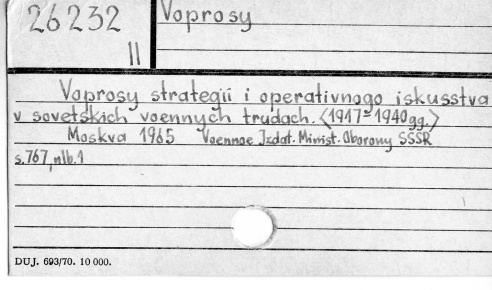 26232
II
Voprosy
Voprosy strategii i operativnogo iskusstva
v sovetskich voennych trudach. <1917-1940gg.>
Moskva 1965 Voennoe Izdat. Minist. Oborony SSSR
s.767, nlb.1
DUJ. 693/70. 10 000.